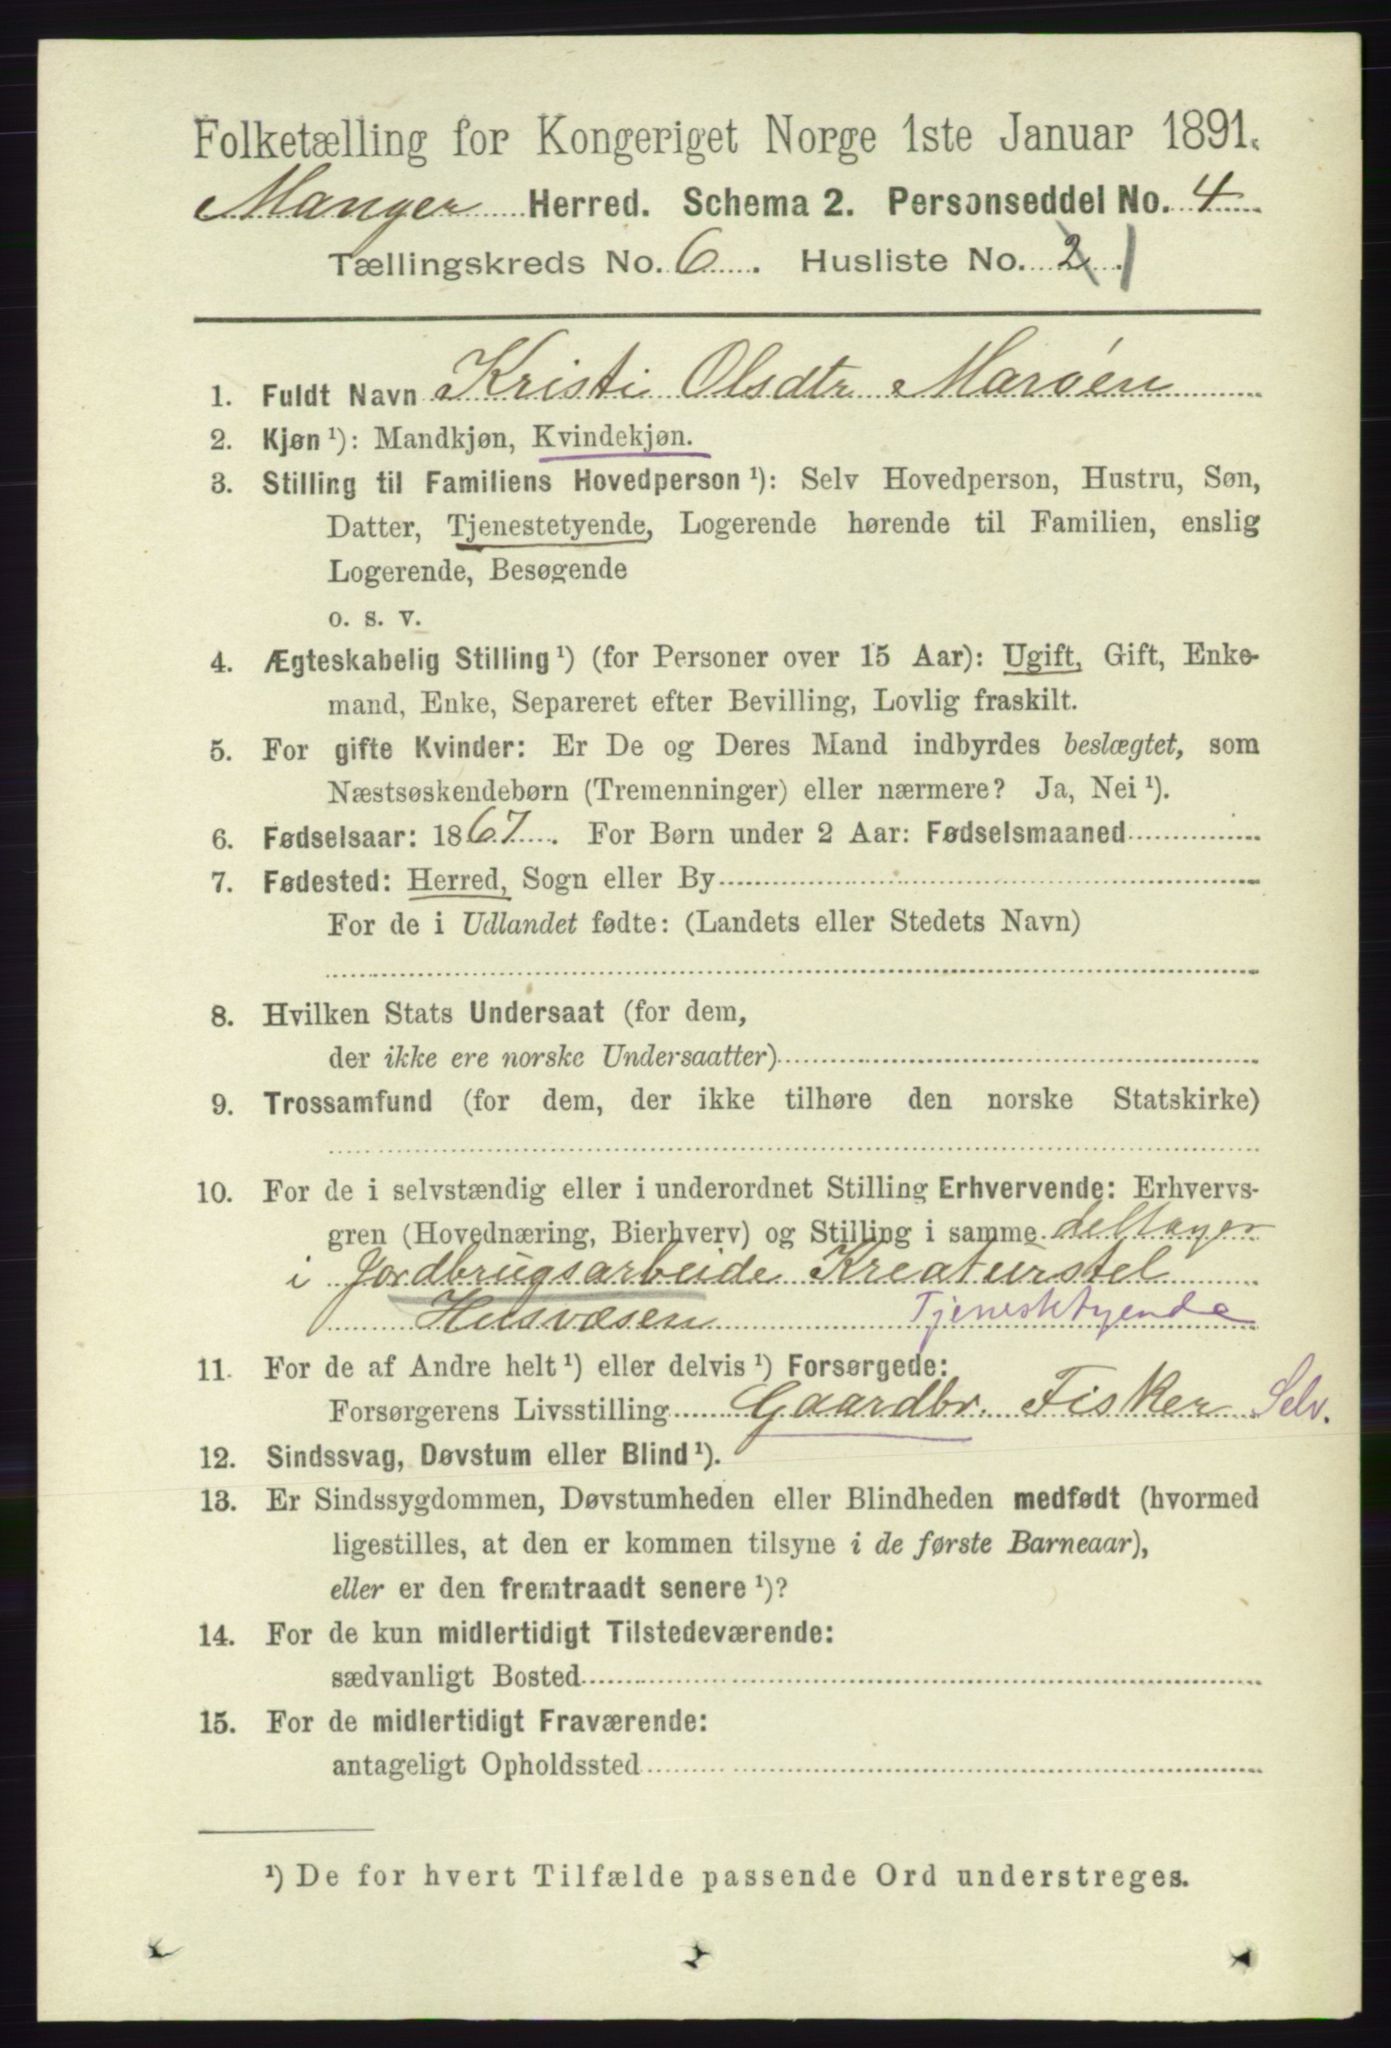 Folketælling for Kongeriget Norge 1ste Januar 1891.
Manger Herred. Schema 2. Personseddel No. 4
Tællingskreds No. 6. Husliste No. 2 1
1. Fuldt Navn Kristi Olsdtr Marøen
2. Kjøn ¹): Mandkjøn, Kvindekjøn.
3. Stilling til Familiens Hovedperson ¹): Selv Hovedperson, Hustru, Søn,
Datter, Tjenestetyende, Logerende hørende til Familien, enslig
Logerende, Besøgende
o. s. v.
4. Ægteskabelig Stilling ¹) (for Personer over 15 Aar): Ugift, Gift, Enke-
mand, Enke, Separeret efter Bevilling, Lovlig fraskilt.
5. For gifte Kvinder: Er De og Deres Mand indbyrdes beslægtet, som
Næstsøskendebørn (Tremenninger) eller nærmere? Ja, Nei ¹).
6. Fødselsaar: 1867. For Børn under 2 Aar: Fødselsmaaned
7. Fødested: Herred, Sogn eller By
For de i Udlandet fødte: (Landets eller Stedets Navn)
8. Hvilken Stats Undersaat (for dem,
der ikke ere norske Undersaatter)
9. Trossamfund (for dem, der ikke tilhøre den norske Statskirke)
10. For de i selvstændig eller i underordnet Stilling Erhvervende: Erhvervs-
gren (Hovednæring, Bierhverv) og Stilling i samme deltager
i Jordbrugsarbeide Kreaturstel
Husvæsen Tjenestetyende
11. For de af Andre helt ¹) eller delvis ¹) Forsørgede:
Forsørgerens Livsstilling Gaardbr. Fisker Selv.
12. Sindssvag, Døvstum eller Blind ¹).
13. Er Sindssygdommen, Døvstumheden eller Blindheden medfødt (hvormed
ligestilles, at den er kommen tilsyne i de første Barneaar),
eller er den fremtraadt senere ¹)?
14. For de kun midlertidigt Tilstedeværende:
sædvanligt Bosted
15. For de midlertidigt Fraværende:
antageligt Opholdssted
¹) De for hvert Tilfælde passende Ord understreges.